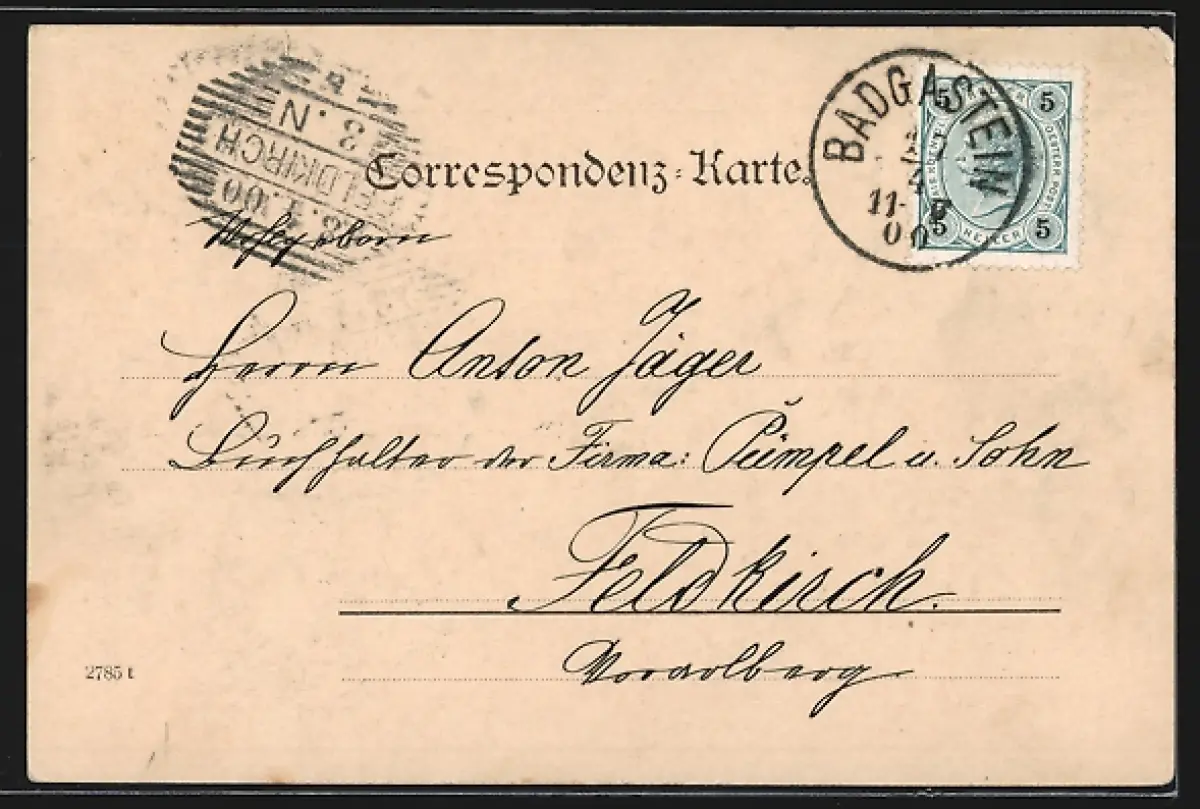 3. N
FELDKIRCH
00
Correspondenz-Karte.
BADGASTEIN
11-
00
5 5
5 HELLER 5
Wohlgeborn
Herrn Anton Jäger
Buchhalter der Firma: Pümpel u. Sohn
Feldkirch.
Vorarlberg
2785 t